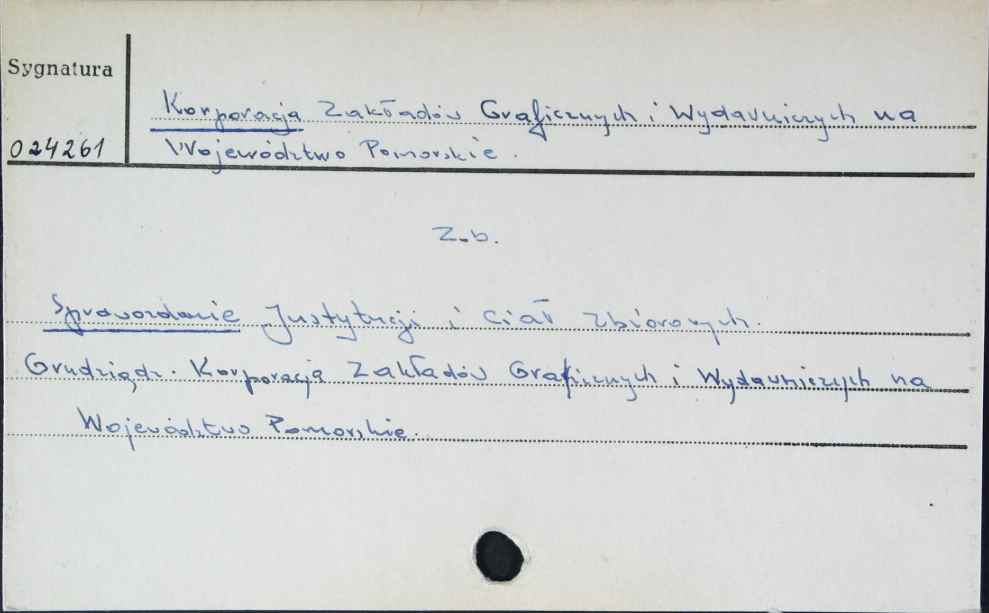 Sygnatura
Korporacja Zakładów Graficznych i Wydawniczych na
024261
Województwo Pomorskie.
Z.b.
Sprawozdanie Instytucji i Ciał Zbiorowych.
Grudziądz. Korporacja Zakładów Graficznych i Wydawniczych na
Województwo Pomorskie.